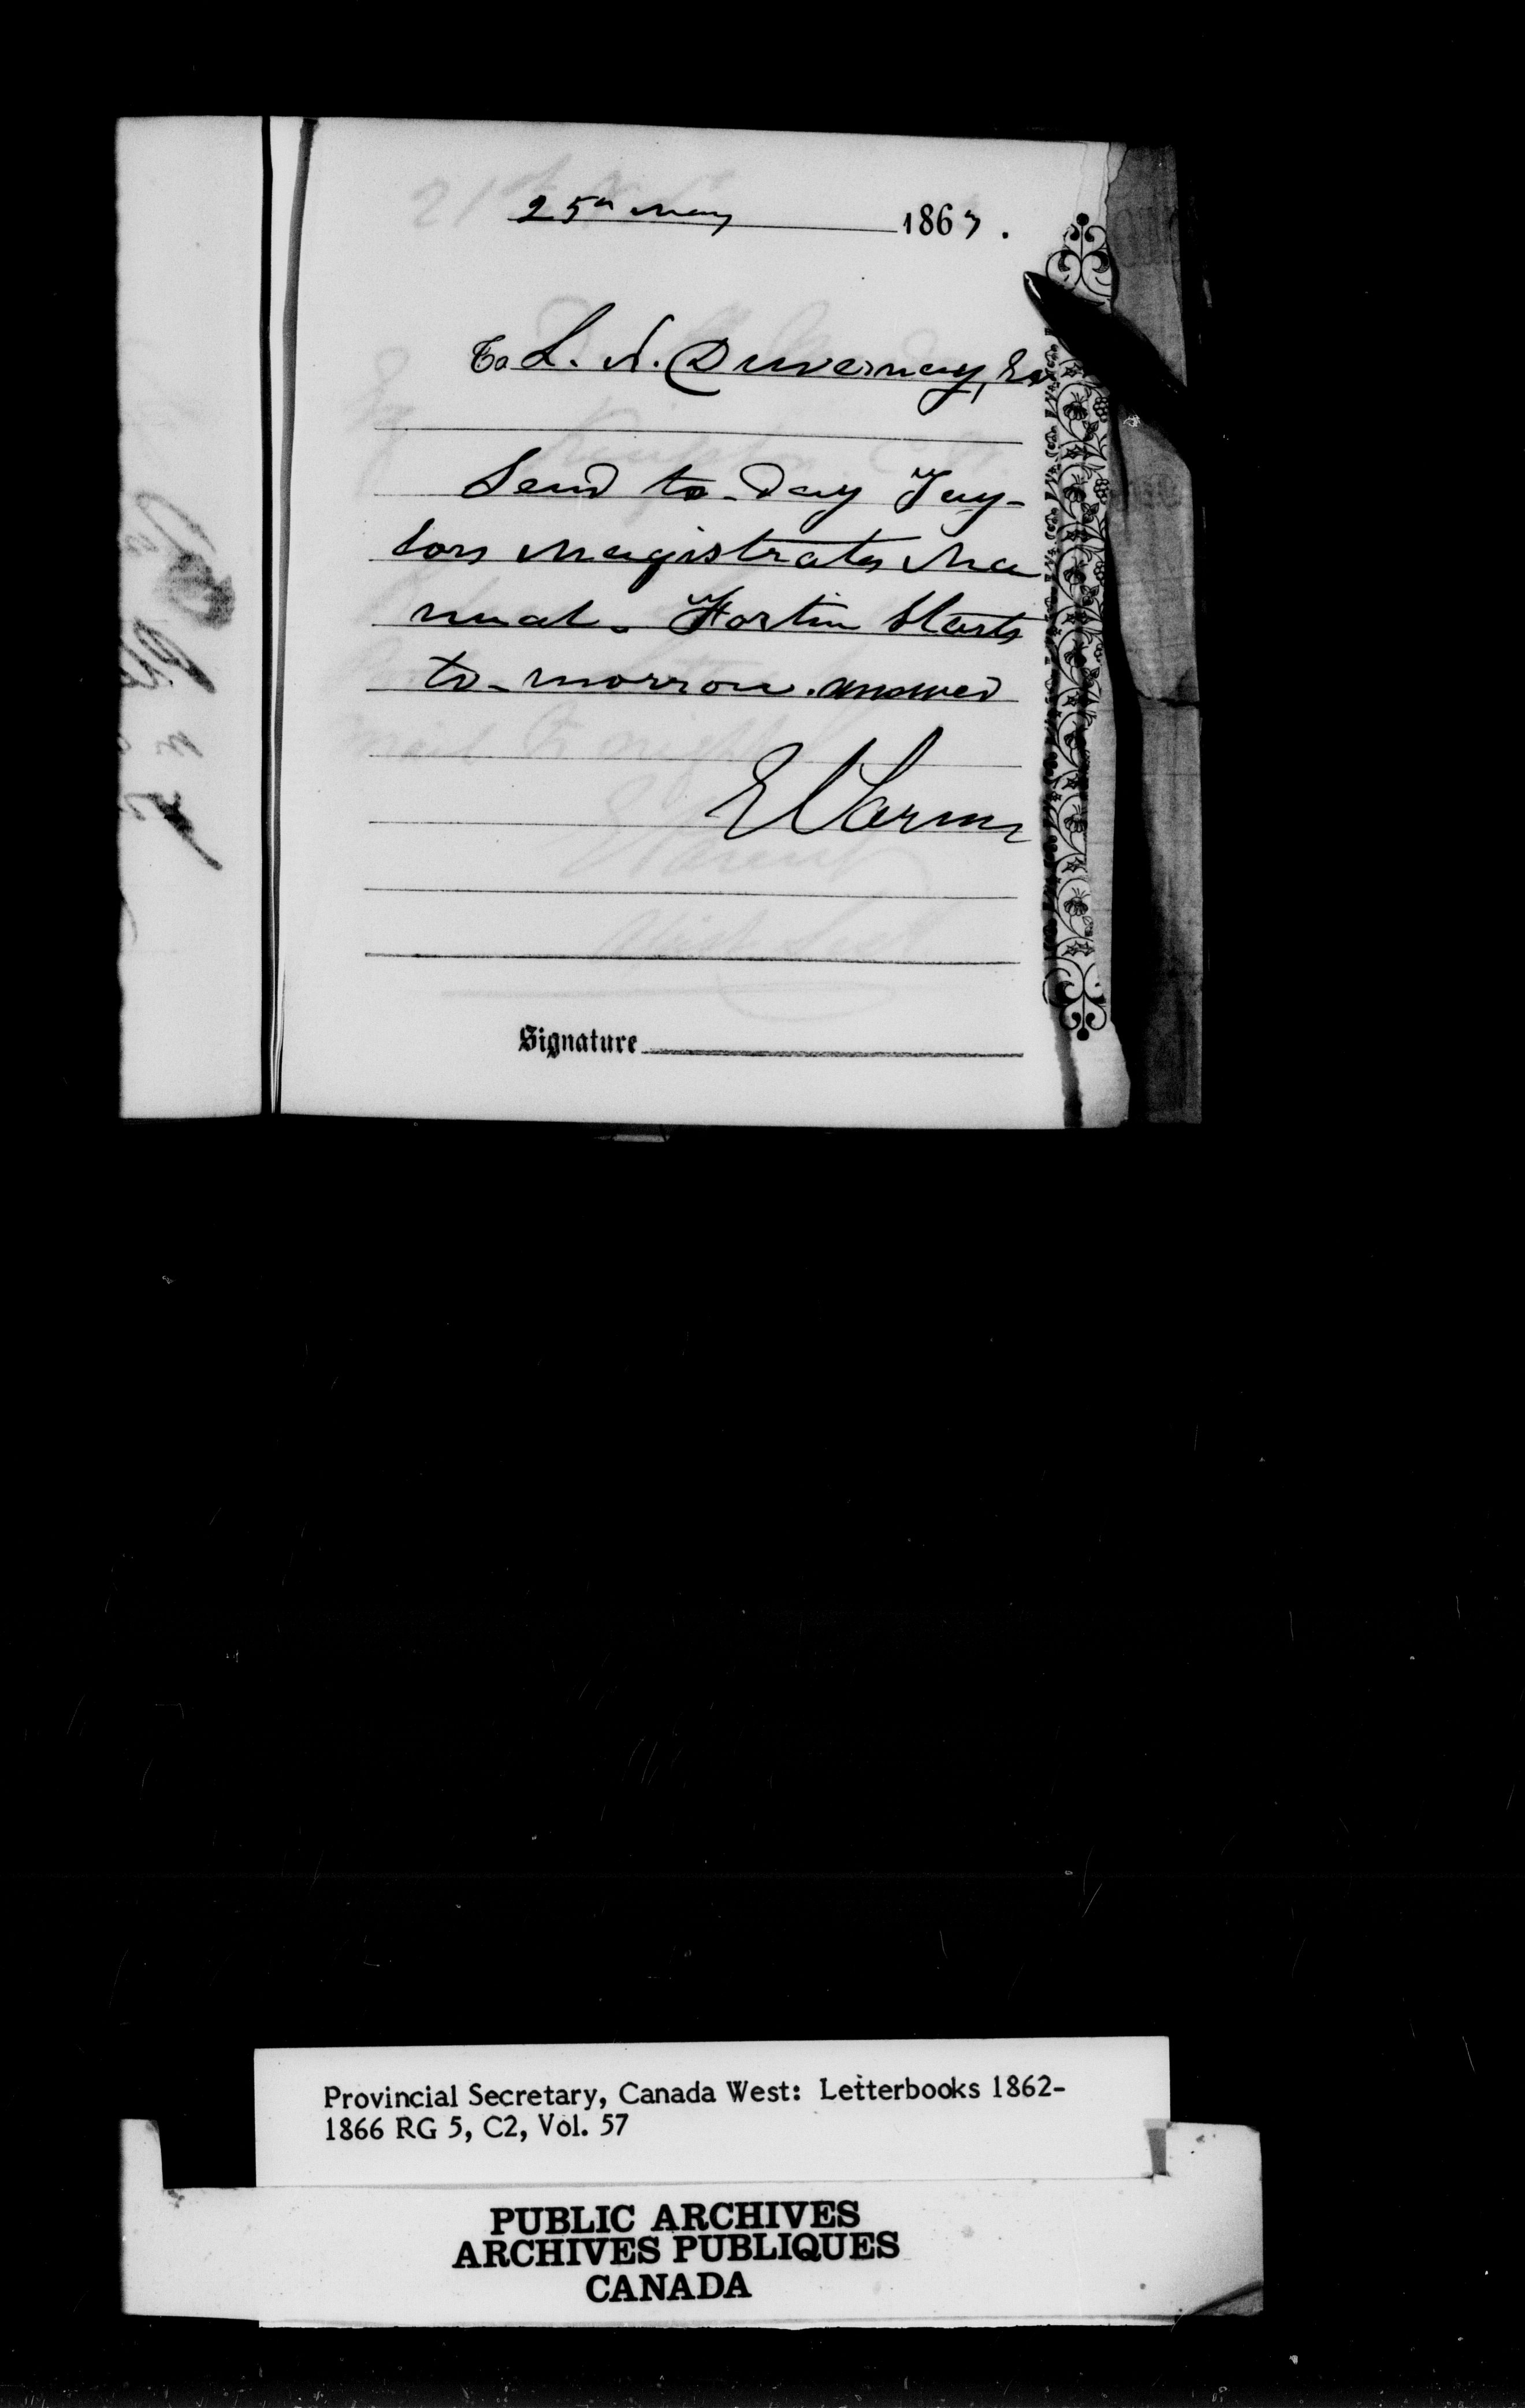 25th May 1863.
To L. N. Duvernay, Es
Send to-day Tay-
lors Magistrates Ma
nual. Fortin starts
to-morrow. answer
E Parent
Signature
Provincial Secretary, Canada West: Letterbooks 1862-
1866 RG 5, C2, Vol. 57
PUBLIC ARCHIVES
ARCHIVES PUBLIQUES
CANADA